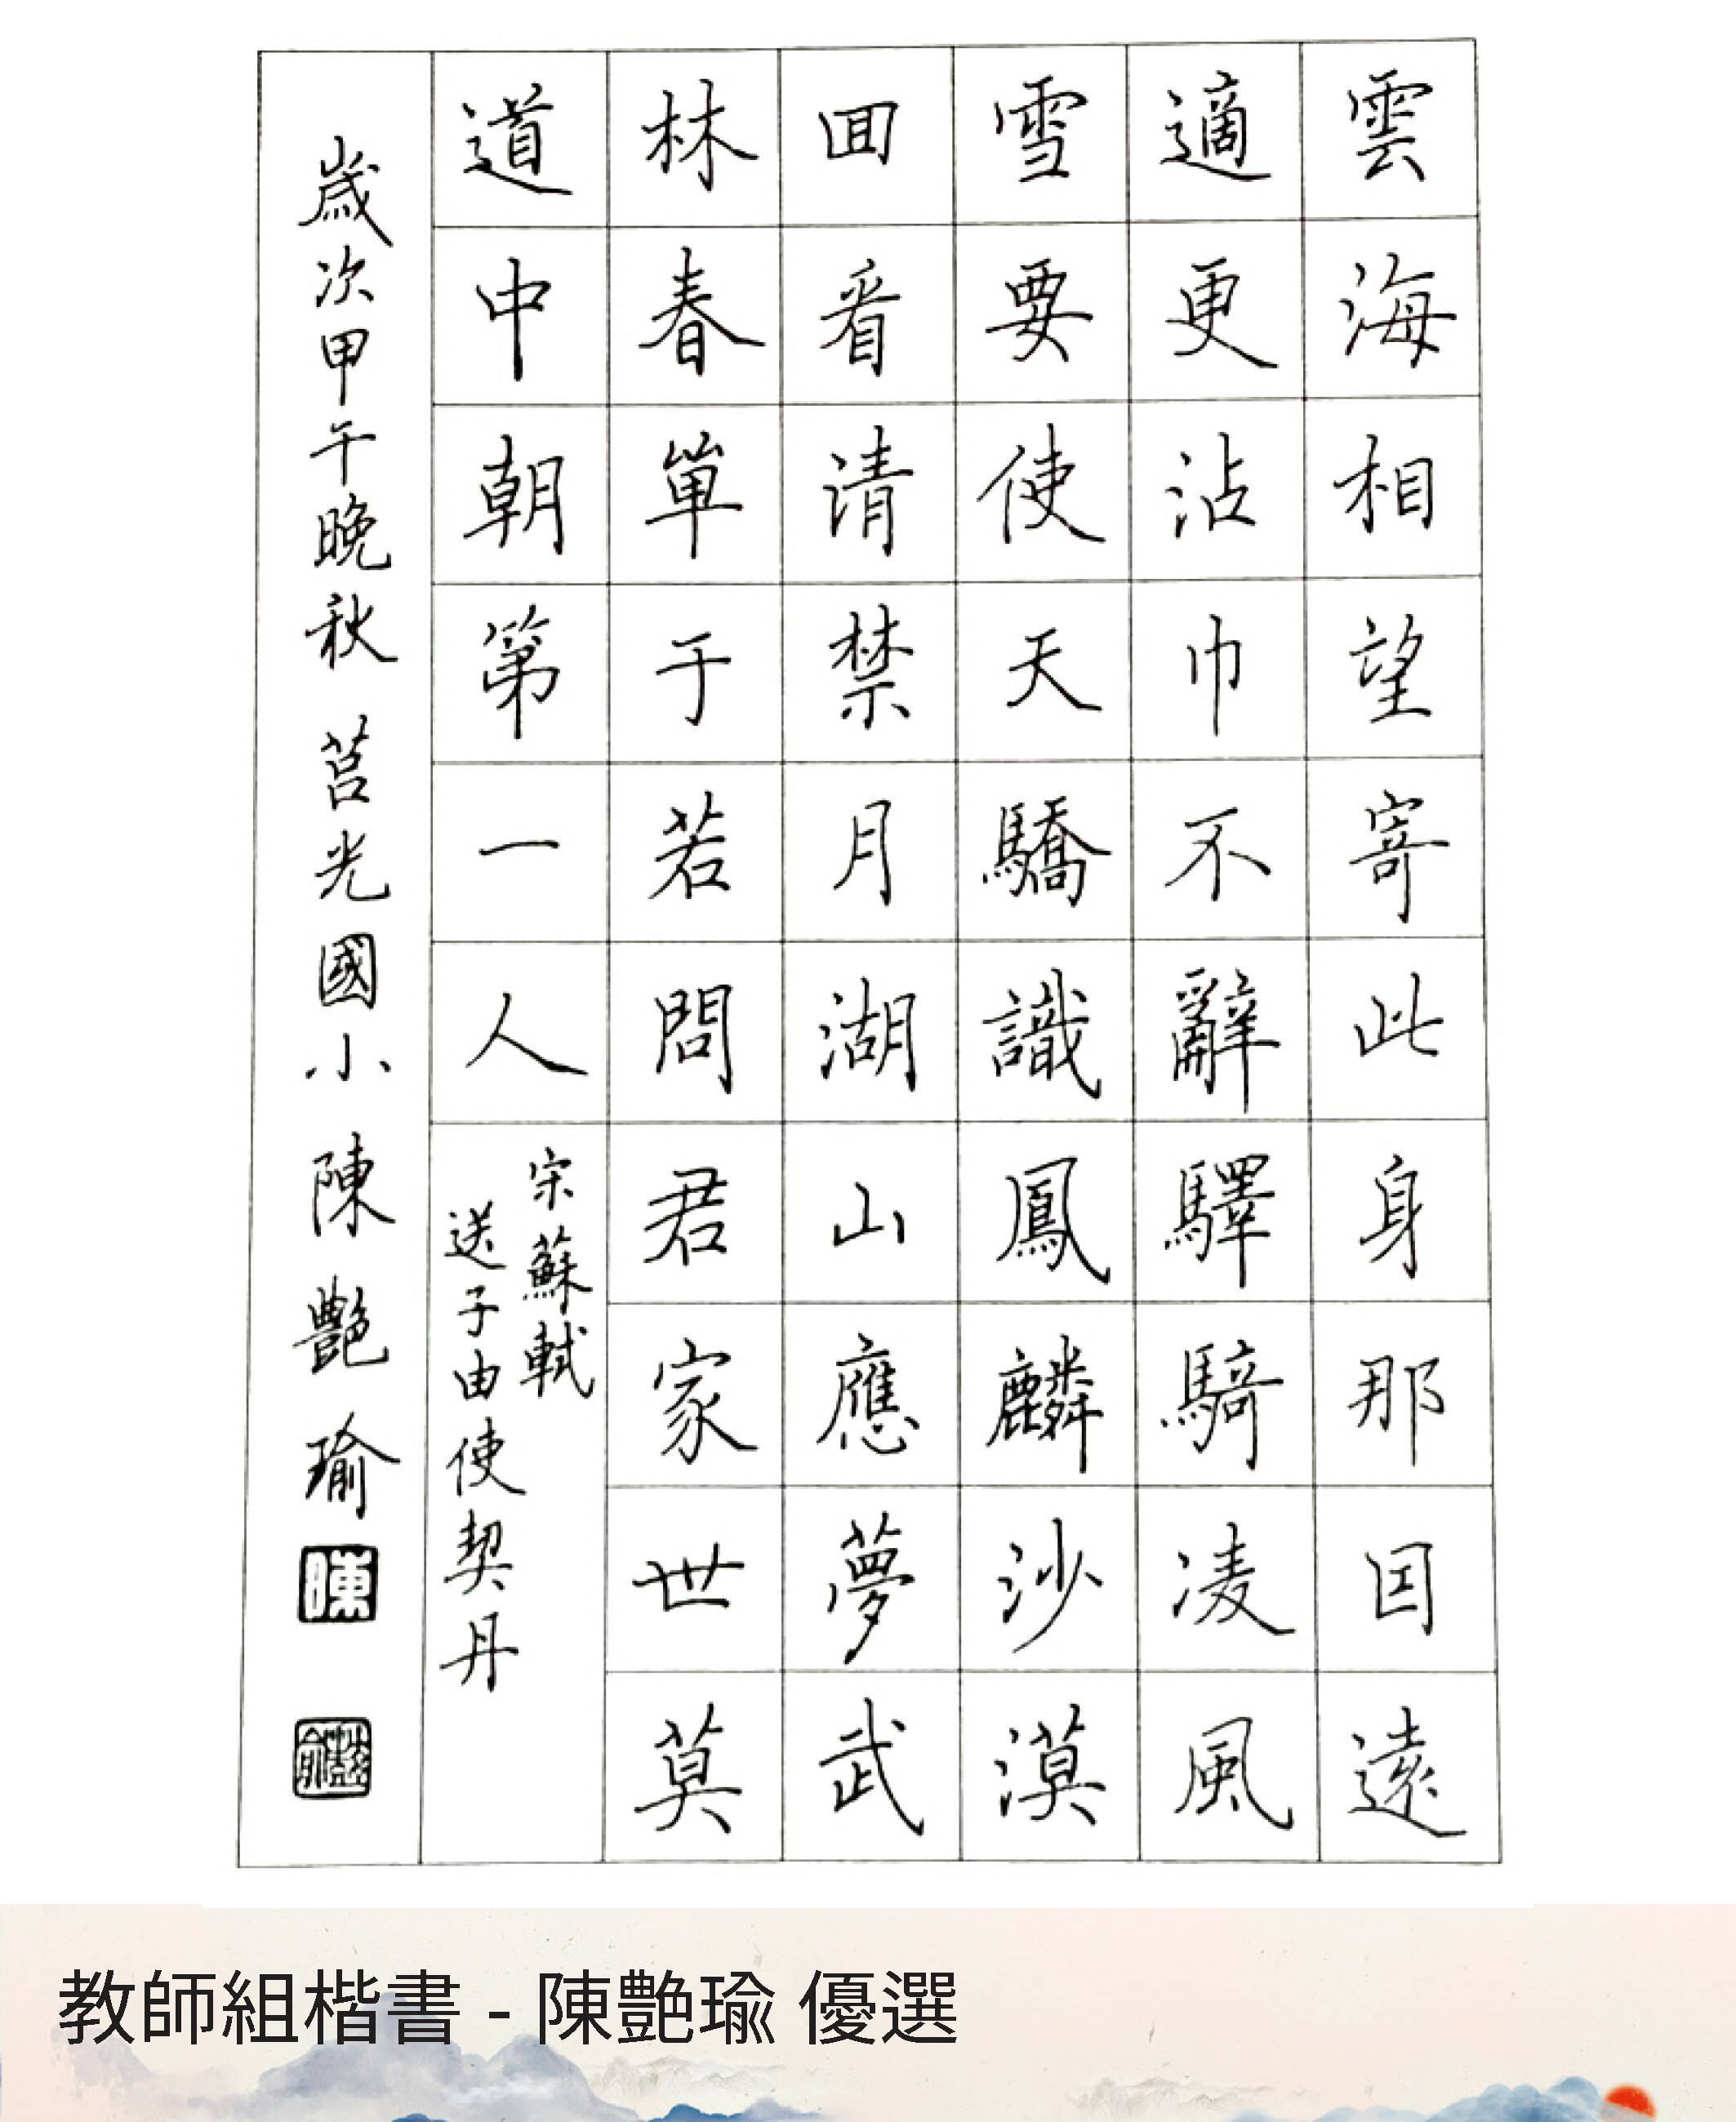 雲海相望寄此身那囙遠
適更沾巾不辭驛騎凌風
雪要使天驕識鳳麟沙漠
囬看清禁月湖山應夢武
林春單于若問君家世莫
道中朝第一人
宋蘇軾
送子由使契丹
歲次甲午晚秋 莒光國小 陳艷瑜
陳
艷瑜
教師組楷書 - 陳艷瑜 優選